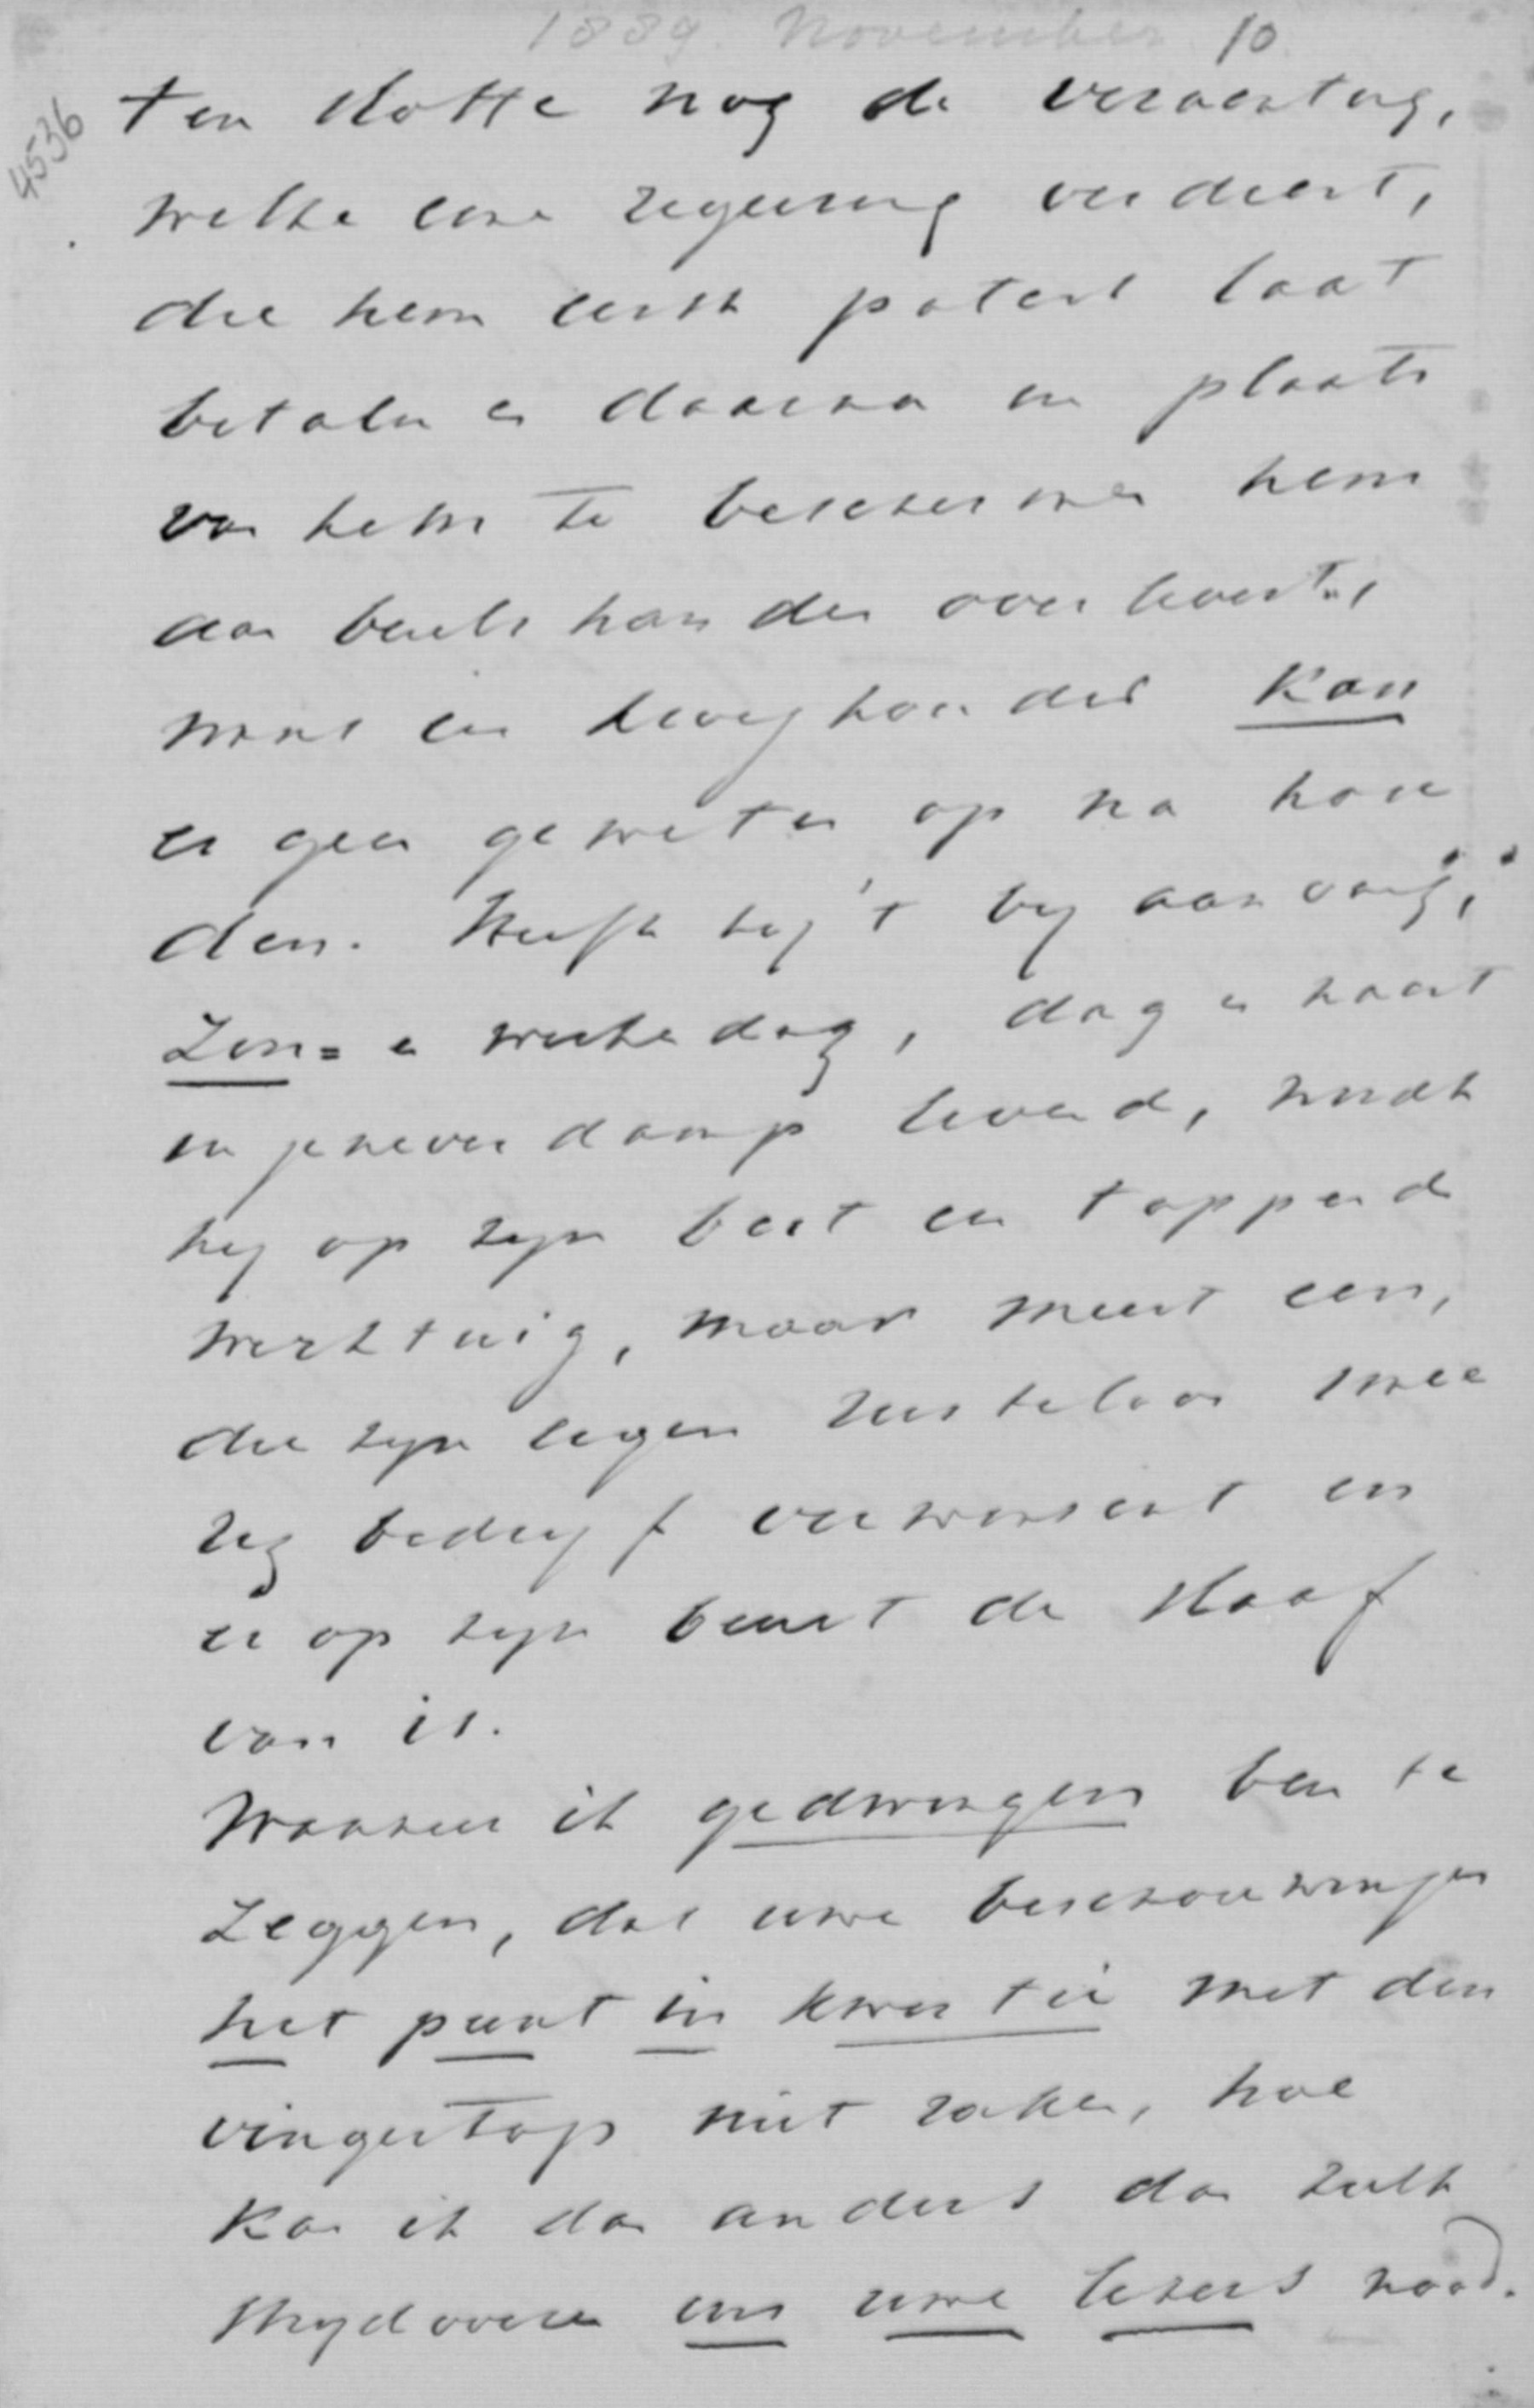 1889. November 10
4536
ten slotte nog de verachting,
welke eene regeering verdient,
die hem eerst patent laat
betalen en daarna in plaats
van hem te beschermen hem
aan beulshanden overlevert,
want een kroeghouder kan
er geen geweten op na hou
den. Heeft hij 't bij aanvang,
Zon= en werkedag, dag en nacht
in jeneverdamp levend, wordt
hij op zijn best een tappend
werktuig, maar meest een,
die zijn eigen rusteloos
bedrijf verwenscht en
er op zijn beurt de slaaf
van is.
Wanneer ik gedwongen ben te
Zeggen, dat uwe beschouwingen
het punt in kwestie met den
vingertop niet raken, hoe
Kan ik dan anders dan zulk
strijdvoeren om uwe lezers